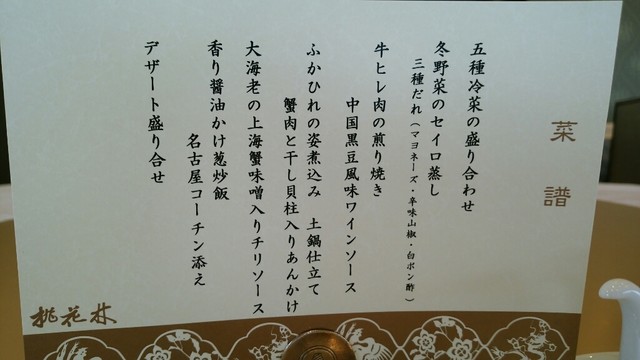 菜譜
五種冷菜の盛り合わせ
冬野菜のセイロ蒸し
三種だれ（マヨネーズ・辛味山椒・白ポン酢）
牛ヒレ肉の煎り焼き
中国黒豆風味ワインソース
ふかひれの姿煮込み　土鍋仕立て
蟹肉と干し貝柱入りあんかけ
大海老の上海蟹味噌入りチリソース
香り醤油かけ葱炒飯
名古屋コーチン添え
デザート盛り合せ
桃花林